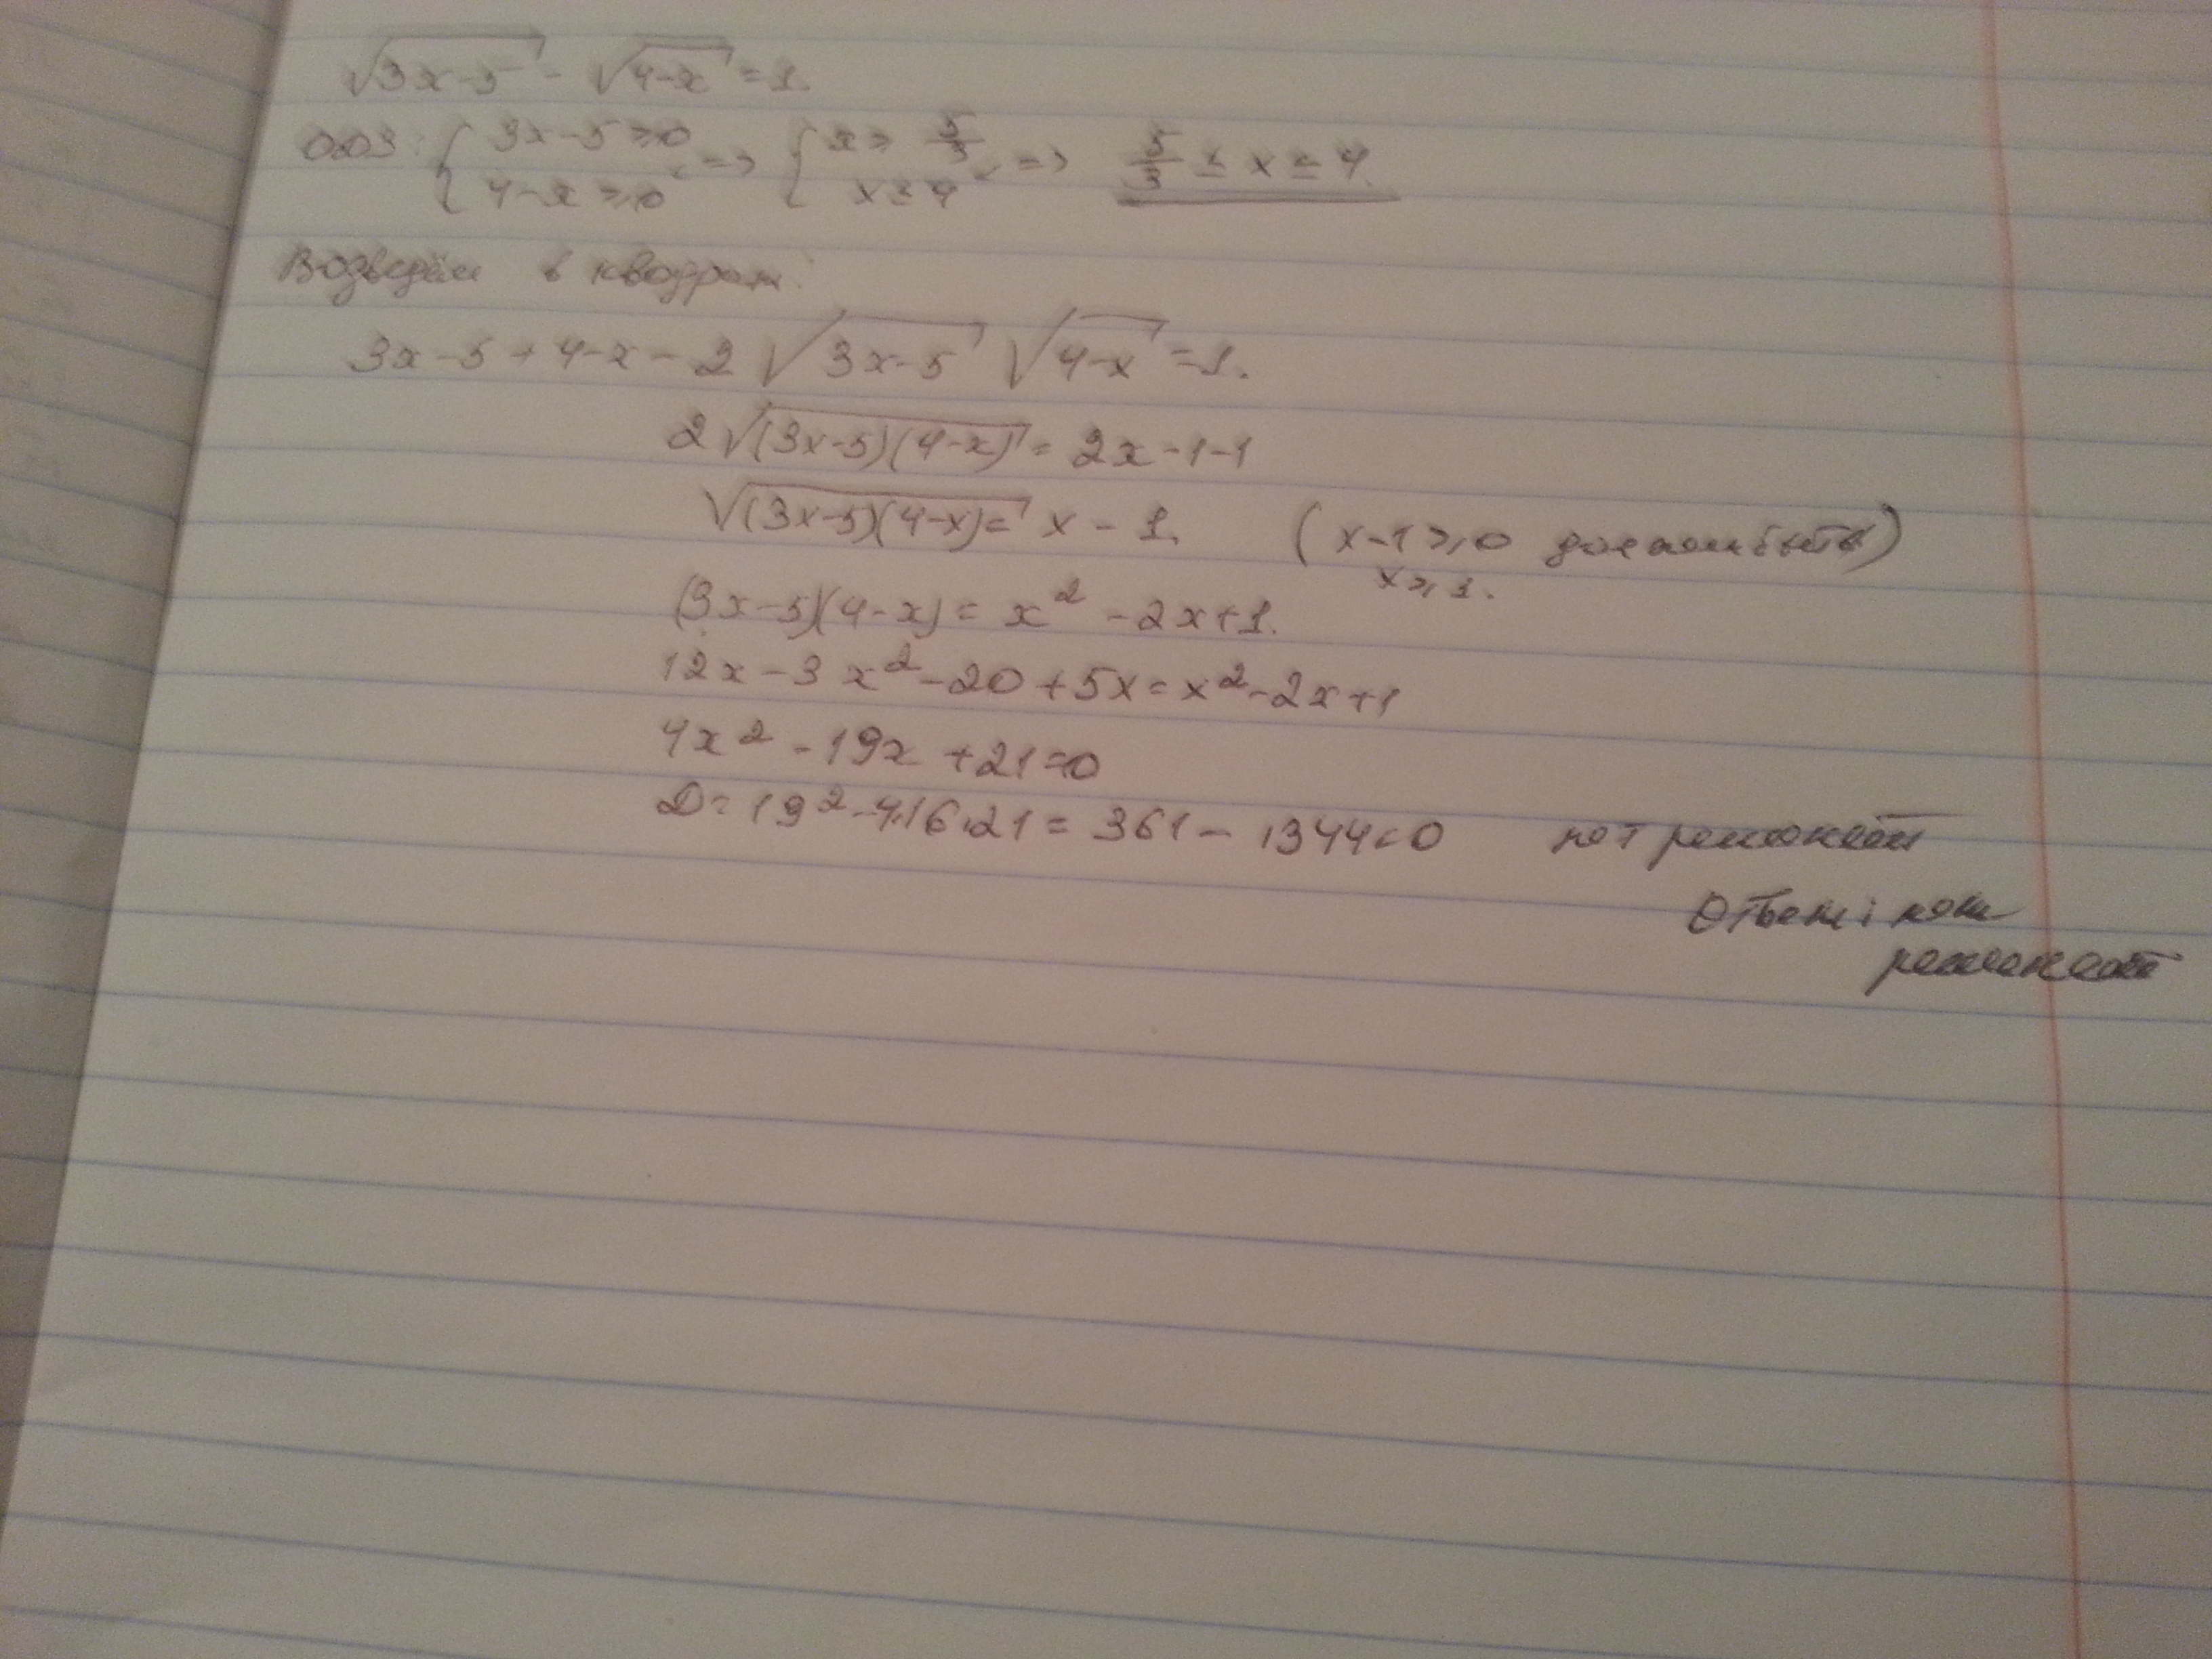 √3x-5 - √4-x = 1.
ОДЗ: { 3x-5 ≥ 0 4-x ≥ 0 => { x ≥ 5/3 x ≤ 4 => 5/3 ≤ x ≤ 4.
Возведём в квадрат:
3x-5+4-x-2√3x-5 √4-x = 1.
2√(3x-5)(4-x) = 2x-1-1
√(3x-5)(4-x) = x-1. (x-1≥0 должно быть)
x≥1.
(3x-5)(4-x) = x²-2x+1.
12x-3x²-20+5x=x²-2x+1
4x²-19x+21=0
D=19²-4·16·21=361-1344<0 нет решений
Ответ: нет
решений